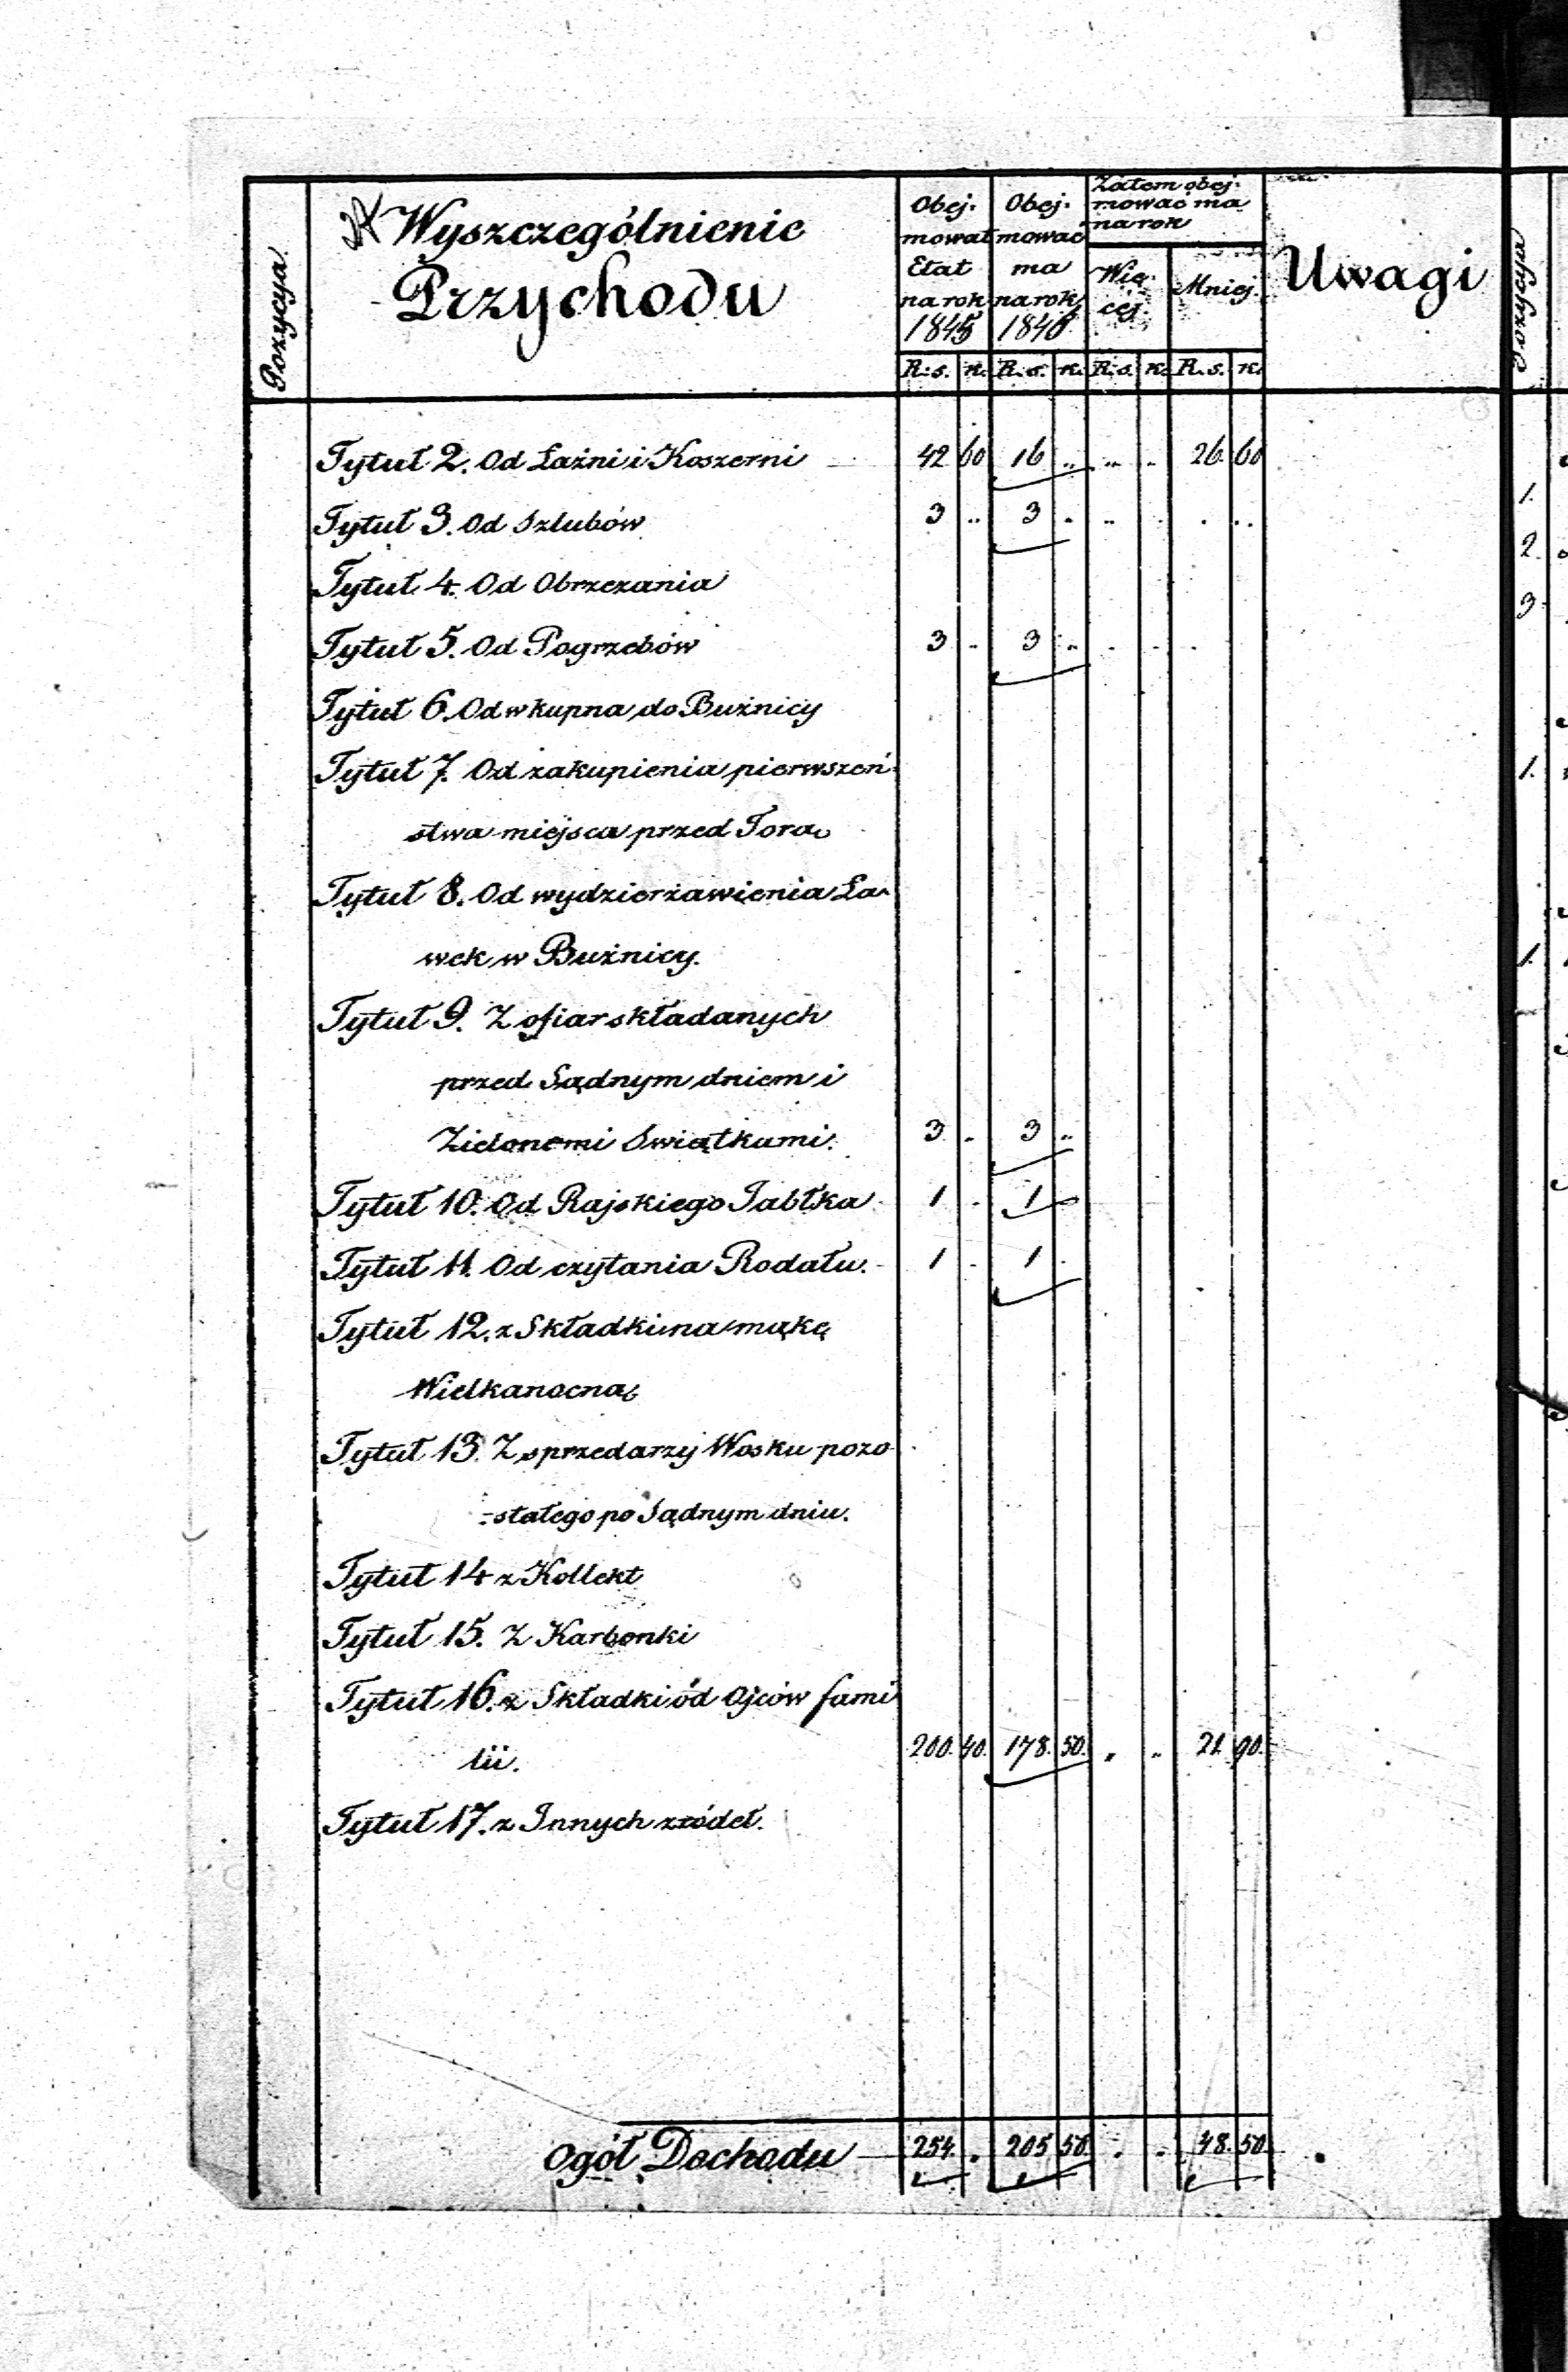 Pozycya
Wyszczególnienie
Przychodu
Obej-
mował
Etat
na rok
1845
Obej-
mować
ma
na rok
1846
Zatem obej-
mować ma
na rok
Wię-
cej.
Mniej.
Uwagi
Pozycya
R.s. k. R.s. k. R.s. k. R.s. k.
Tytuł 2. Od Łaźni i Koszerni 42 60 16 .. .. .. 26. 60
Tytuł 3. Od Szlubów 3 .. 3 . .. . . ..
Tytuł 4. Od Obrzezania
Tytuł 5. Od Pogrzebów 3 - 3 .. . - .
Tytuł 6. Od wkupna do Buźnicy
Tytuł 7. Od zakupienia pierwszeń-
stwa miejsca przed Torą
Tytuł 8. Od wydzierżawienia Ła-
wek w Buźnicy.
Tytuł 9. Z ofiar składanych
przed Sądnym dniem i
Zielonemi Swiątkami. 3 - 3 ..
Tytuł 10. Od Rajskiego Jabłka 1 - 1 -
Tytuł 11. Od czytania Rodału. - 1 - 1 .
Tytuł 12. z Składki na mąkę
Wielkanocną
Tytuł 13. Z sprzedarzy Wosku pozo
-stałego po Sądnym dniu.
Tytuł 14 z Kollekt
Tytuł 15. Z Karbonki
Tytuł 16. z Składki od Ojców fami
lii. 200. 40. 178. 50. . .. 21. 90.
Tytuł 17. z Innych zródeł.
Ogół Dochodu 254 . 205 50. . . 48. 50.
1.
2.
3.
1.
1.